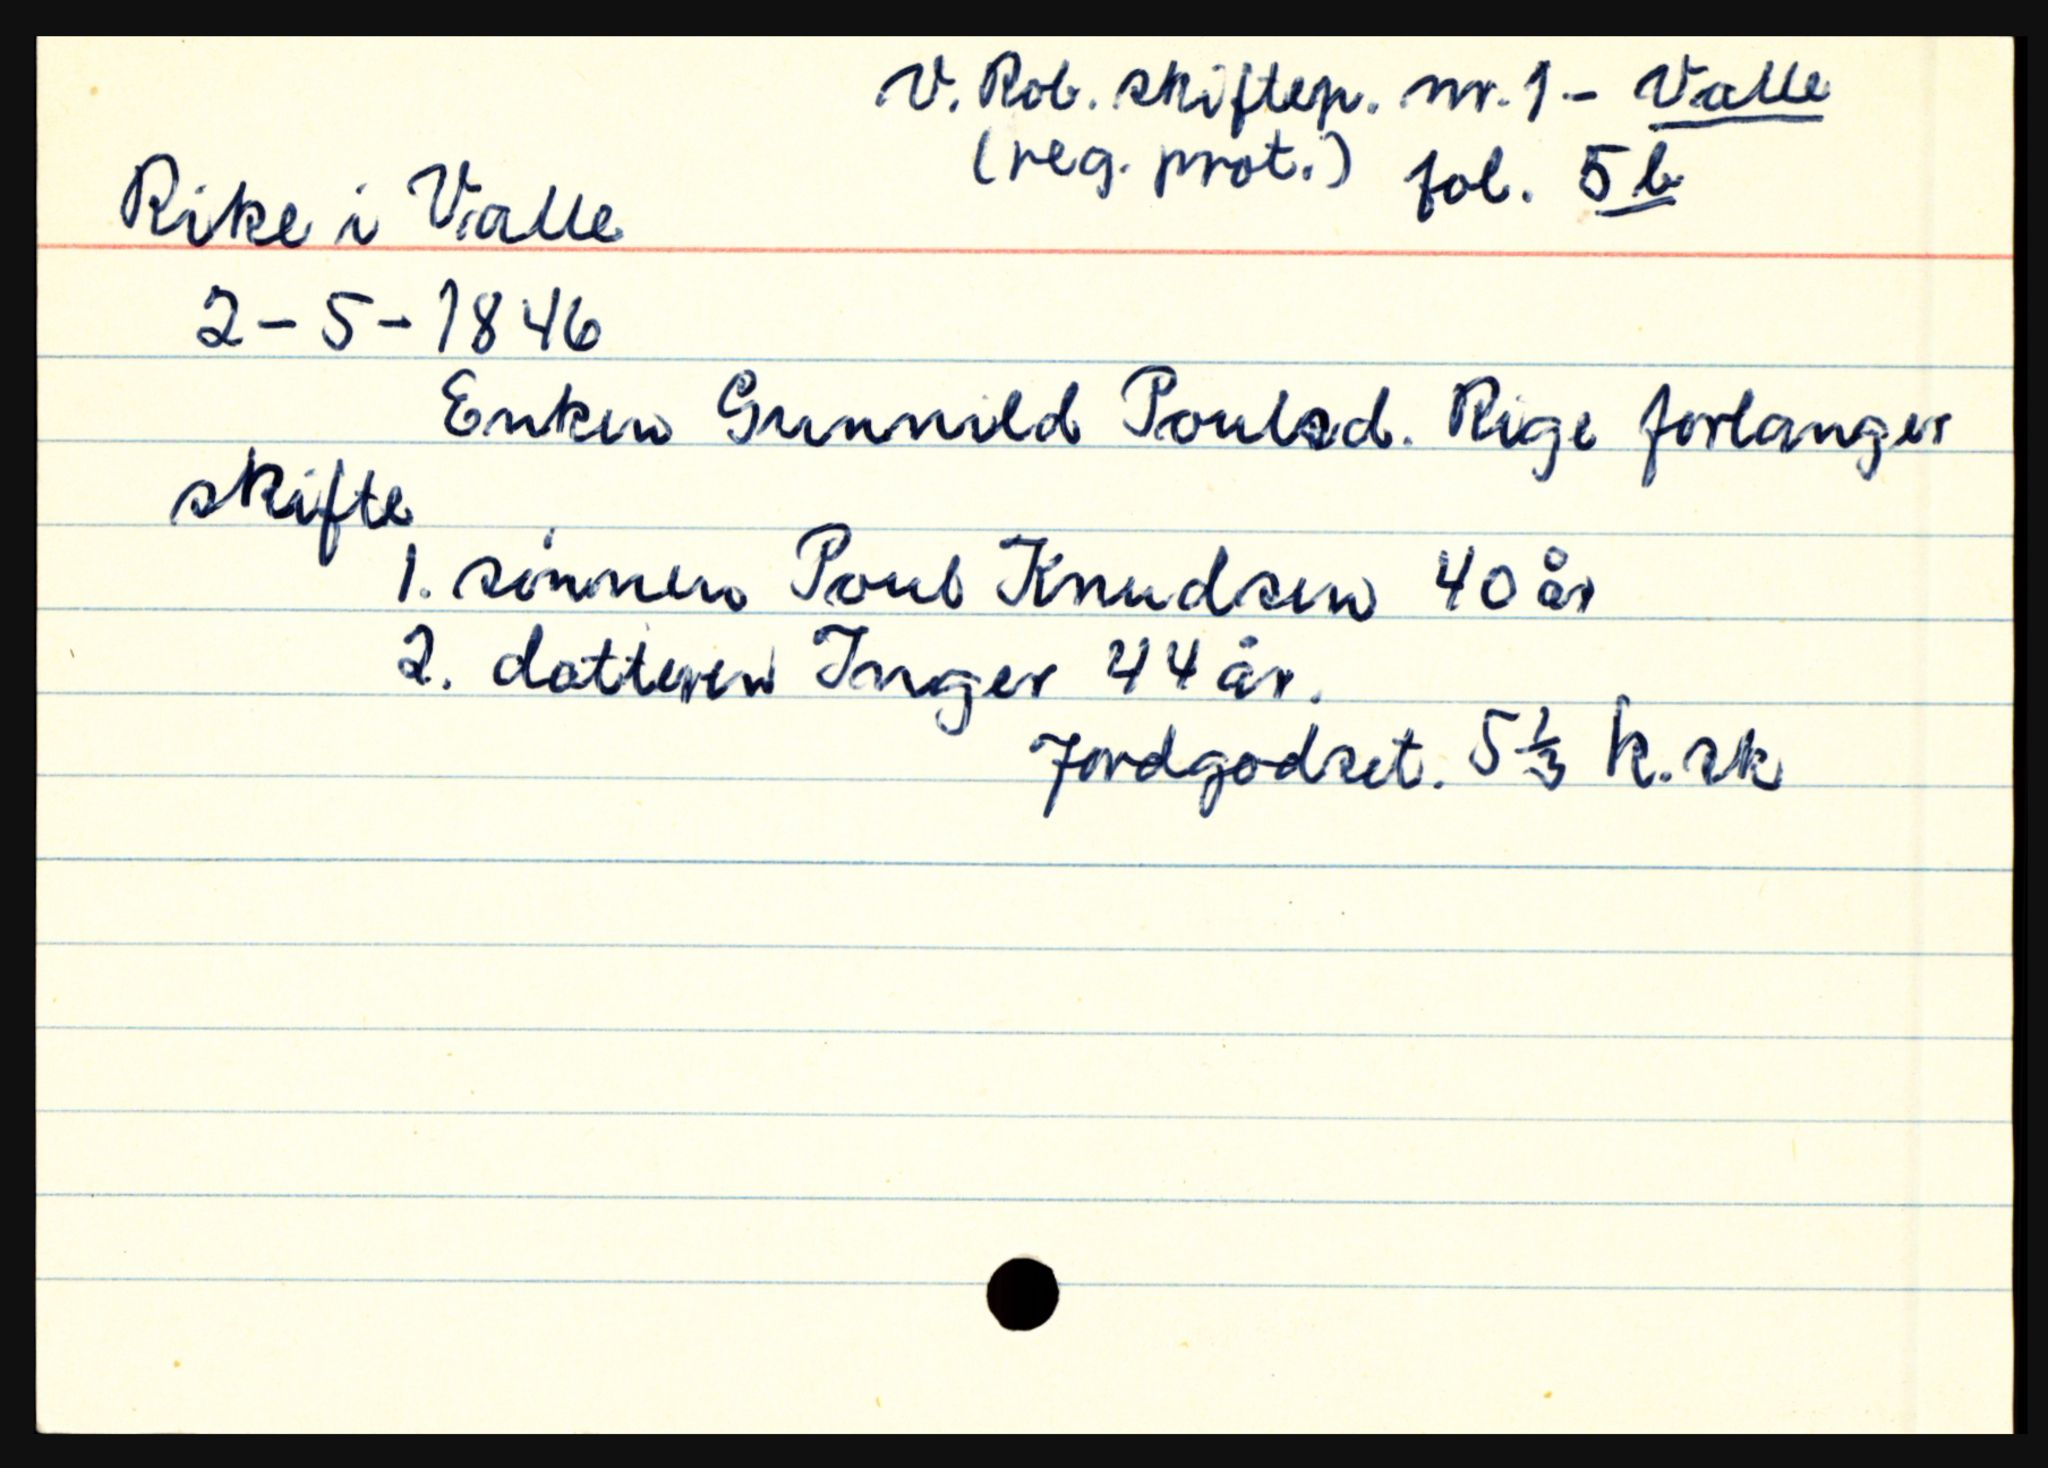 V. Rob. skiftep. nr. 1 - Valle
(reg. prot.) fol. 5b
Rike i Valle
2-5-1846
Enken Gunnild Poulsd. Rige forlanger
skifte
1. sönnen Poul Knudsen 40 år
2. datteren Inger 44 år.
Jordgodset. 5 1/3 k. sk